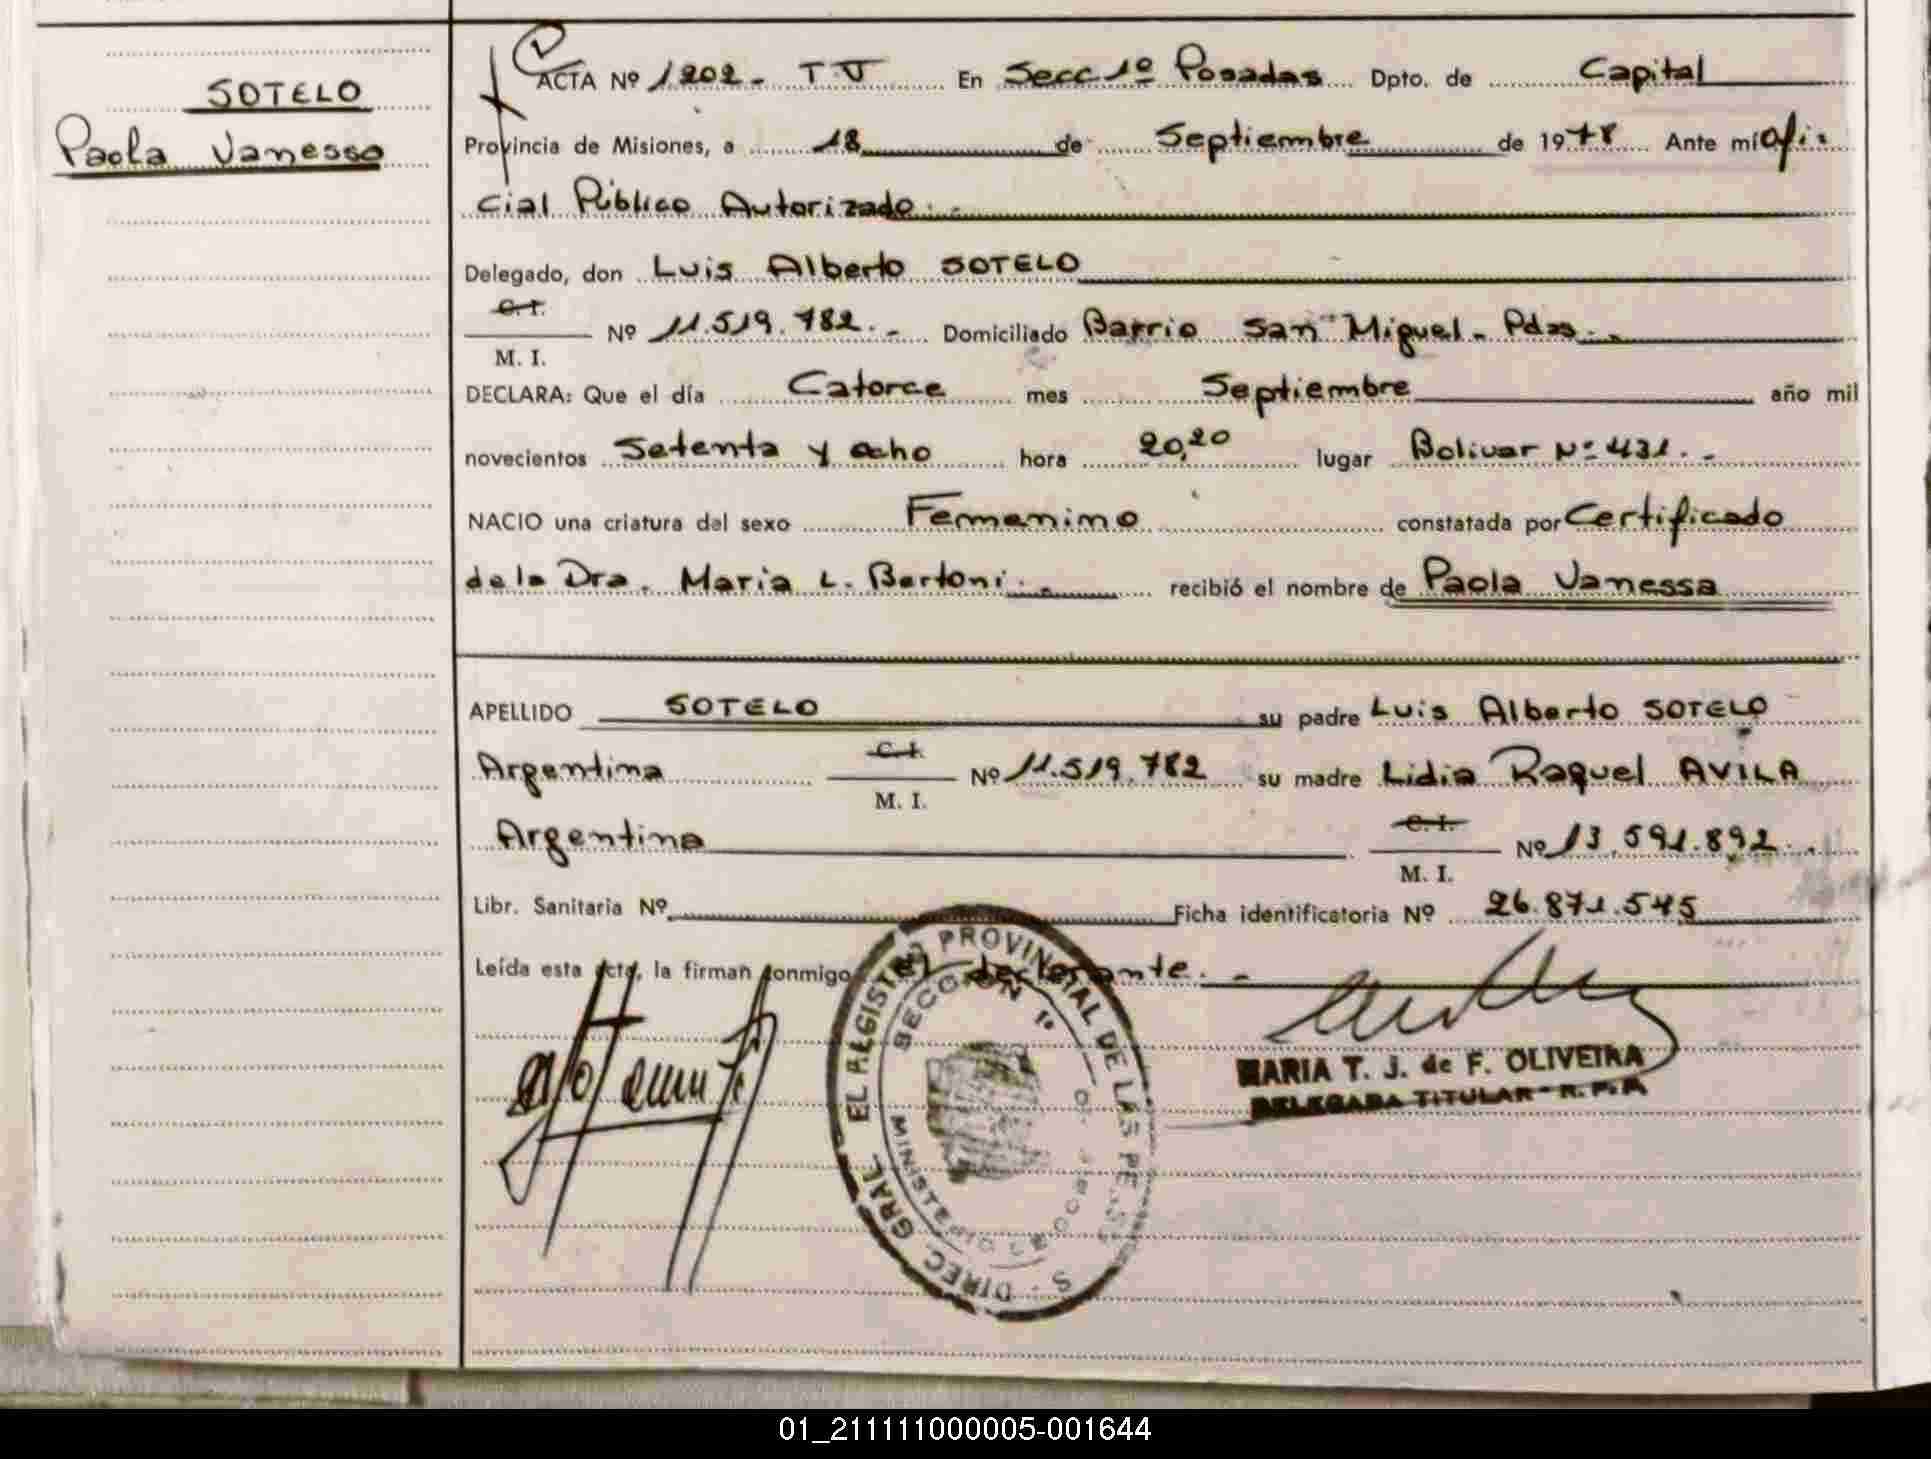 SOTELO
Paola Vanessa
ACTA Nº 1202.- T V En Secc 1º Posadas Dpto. de Capital
Provincia de Misiones, a 18 de Septiembre de 1978 Ante mí Ofi-
cial Público Autorizado.-
Delegado, don Luis Alberto SOTELO
C. I.
Nº 11.519.782.- Domiciliado Barrio San Miguel - Pdas.-
M. I.
DECLARA: Que el día Catorce mes Septiembre año mil
novecientos Setenta y ocho hora 20,20 lugar Bolivar Nº 431.-
NACIO una criatura del sexo Femenino constatada por Certificado
de la Dra. Maria L. Bertoni.- recibió el nombre de Paola Vanessa
APELLIDO SOTELO su padre Luis Alberto SOTELO
Argentina C. I. Nº 11.519.782 su madre Lidia Raquel AVILA
M. I.
Argentina C. I. Nº 13.591.892.-
M. I.
Libr. Sanitaria Nº Ficha identificatoria Nº 26.871.545
Leída esta acta, la firman conmigo el declarante.-
DIREC. GRAL. EL REGISTRO PROVINCIAL DE LAS PERS
SECCION 1º
MINISTERIO DE GOB
MARIA T. J. de F. OLIVEIRA
DELEGADA TITULAR - R. P. P.
01_211111000005-001644